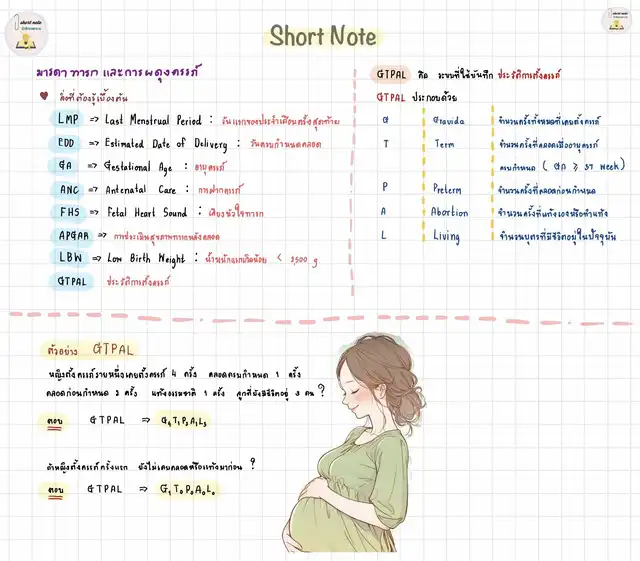 short note
Short Note
short note
มารดา ทารก และการผดุงครรภ์
สิ่งที่ต้องรู้เบื้องต้น
LMP => Last Menstrual Period : วันแรกของประจำเดือนครั้งสุดท้าย
EDD => Estimated Date of Delivery : วันครบกำหนดคลอด
GA => Gestational Age : อายุครรภ์
ANC => Antenatal Care : การฝากครรภ์
FHS => Fetal Heart Sound : เสียงหัวใจทารก
APGAR => การประเมินสุขภาพทารกหลังคลอด
LBW => Low Birth Weight : น้ำหนักแรกเกิดน้อย < 2500 g
GTPAL ประวัติการตั้งครรภ์
GTPAL คือ ระบบที่ใช้บันทึก ประวัติการตั้งครรภ์
GTPAL ประกอบด้วย
G Gravida จำนวนครั้งทั้งหมดที่เคยตั้งครรภ์
T Term จำนวนครั้งที่คลอดเมื่ออายุครรภ์
ครบกำหนด ( GA ≥ 37 week)
P Preterm จำนวนครั้งที่คลอดก่อนกำหนด
A Abortion จำนวนครั้งที่แท้งเองหรือทำแท้ง
L Living จำนวนบุตรที่มีชีวิตอยู่ในปัจจุบัน
ตัวอย่าง GTPAL
หญิงตั้งครรภ์รายหนึ่งเคยตั้งครรภ์ 4 ครั้ง คลอดครบกำหนด 1 ครั้ง
คลอดก่อนกำหนด 2 ครั้ง แท้งธรรมชาติ 1 ครั้ง ลูกที่ยังมีชีวิตอยู่ 3 คน ?
ตอบ GTPAL => G₄T₁P₂A₁L₃
ถ้าหญิงตั้งครรภ์ครั้งแรก ยังไม่เคยคลอดหรือแท้งมาก่อน ?
ตอบ GTPAL => G₁T₀P₀A₀L₀